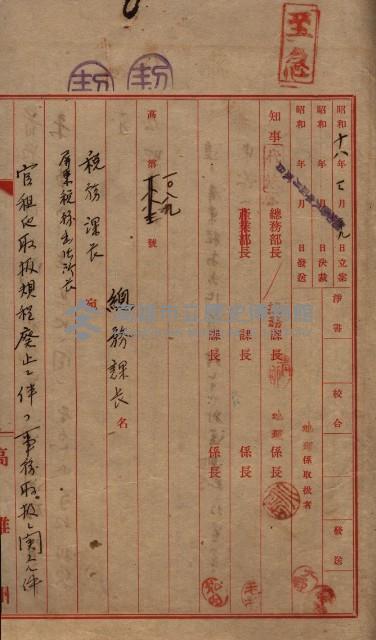 至急
昭和十八年七月九日立案
昭和 年 月 日決裁
昭和 年 月 日發送
淨書
校合
發送
知事
總務部長
產業部長
課長
課長
課長
地理係長
係長
係長
地理係取扱者
高 第一〇八九號
總務課長名
稅務課長
屏東稅務出張所長
宛
官租地取扱規程廢止ニ伴フ事務取扱ニ關スル件
高雄州
高雄市立歷史博物館